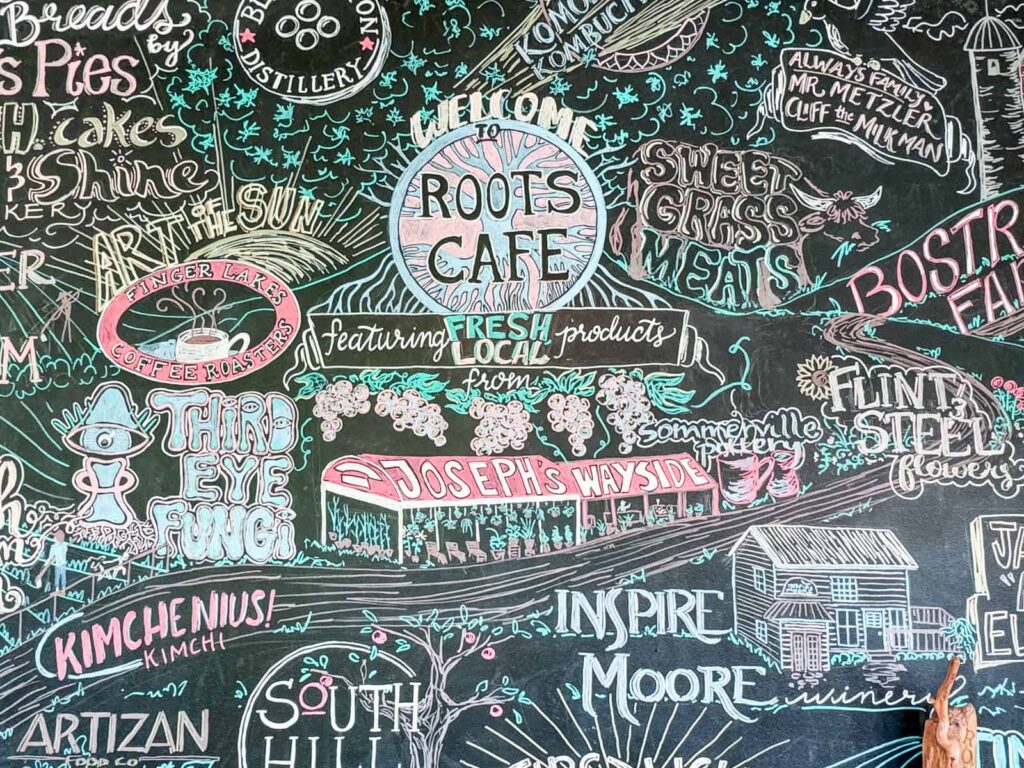 Breads
by
Pies
H. Cakes
& Shine
DISTILLERY
KOMBUCHA
ALWAYS FAMILY
MR. METZLER
CLIFF the MILK MAN
WELCOME
TO
ROOTS
CAFE
featuring FRESH LOCAL products
from
SWEET
GRASS
MEATS
ART OF THE SUN
FINGER LAKES
COFFEE ROASTERS
THIRD
EYE
FUNGI
JOSEPH'S WAYSIDE
Sommerville
pottery
FLINT &
STEEL
(flowers)
KIMCHE NIUS!
KIMCHI
INSPIRE
MOORE
winery
ARTIZAN
FOOD CO
SOUTH
HILL